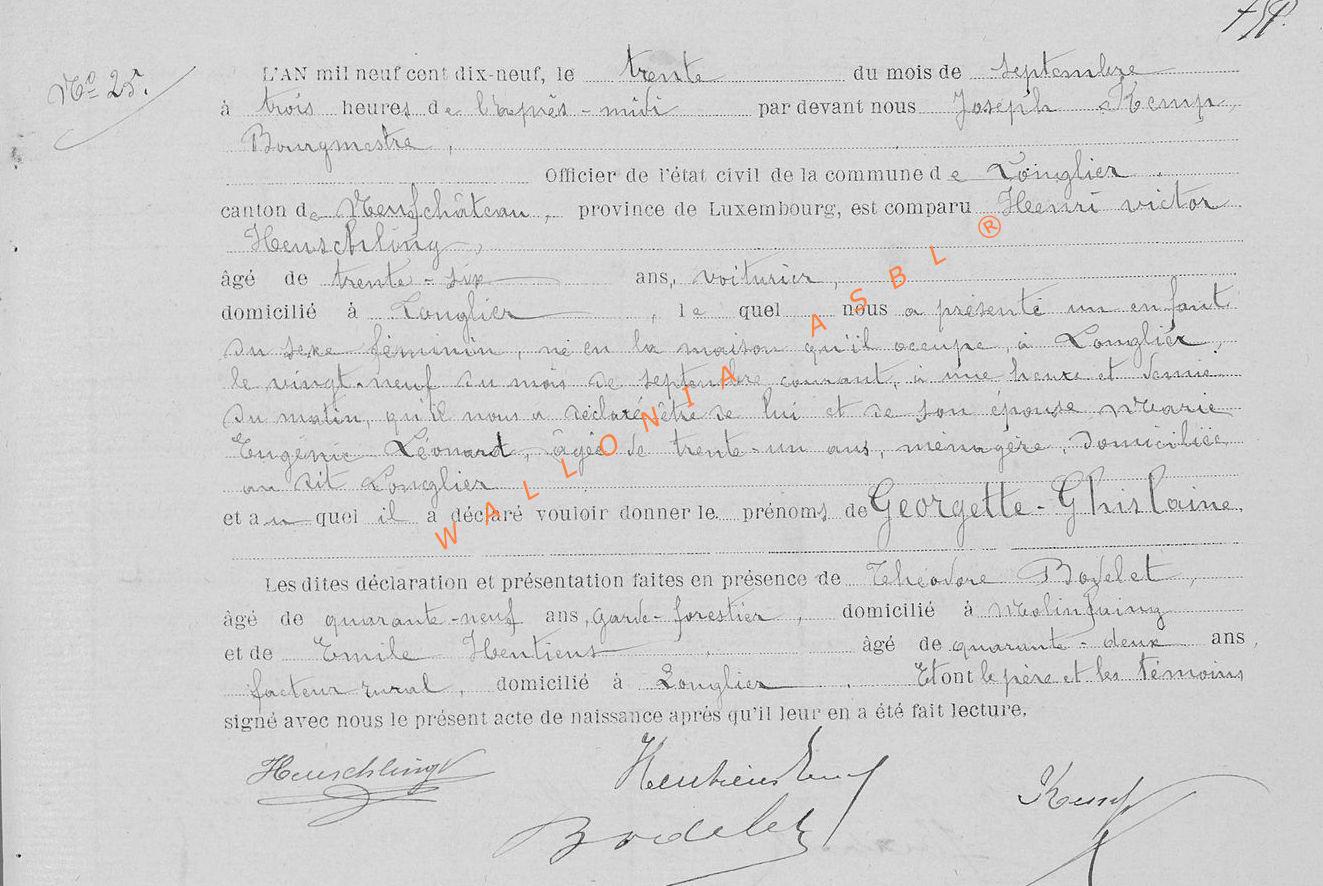 Nº 25.
L'AN mil neuf cent dix-neuf, le trente du mois de septembre
à trois heures de l'après-midi par devant nous Joseph Kemp,
Bourgmestre,
Officier de l'état civil de la commune de Longlier
canton de Neufchâteau, province de Luxembourg, est comparu Henri victor
Heuschling,
âgé de trente-six ans, voiturier,
domicilié à Longlier, le quel nous a présenté un enfant
du sexe féminin, né en la maison qu'il occupe, à Longlier,
le vingt-neuf du mois de septembre courant, à une heure et demie
du matin, qu'il nous a déclaré être de lui et de son épouse Marie
Eugénie Léonard, âgée de trente-un ans, ménagère, domiciliée
au dit Longlier
et au quel il a déclaré vouloir donner le prénoms de Georgette-Ghislaine,
Les dites déclaration et présentation faites en présence de Théodore Bodelet,
âgé de quarante-neuf ans, garde-forestier, domicilié à Molinfaing
et de Emile Hentiens âgé de quarante-deux ans,
facteur rural, domicilié à Longlier. Et ont le père et les témoins
signé avec nous le présent acte de naissance après qu'il leur en a été fait lecture.
Heuschling
Bodelet
Kemp
WALLONIA ASBL ®